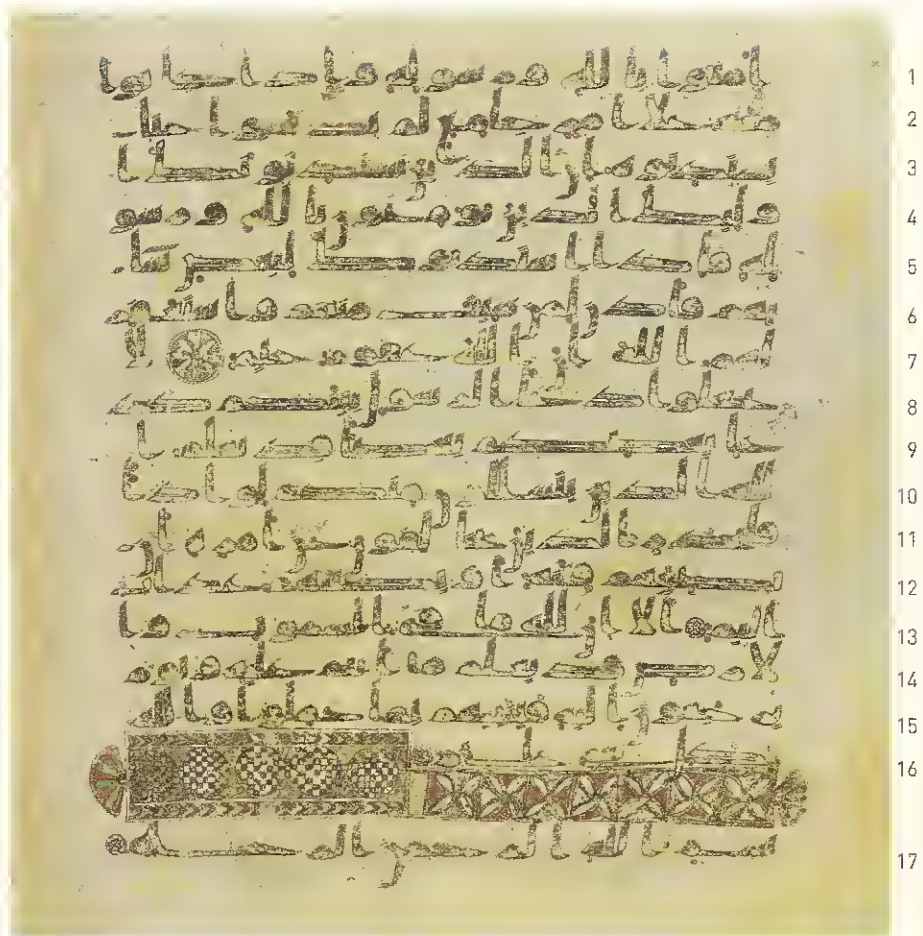 امنوا بالله ورسوله واذا كانوا 1
معه علا امر جامع لم يذهبوا حتى 2
يستذنوه ان الذين يستذنونك ا 3
ولئك الذين يومنون بالله ورسو 4
له فاذا استذنوك لبعض شا 5
نهم فاذن لمن شئت منهم واستغفر 6
لهم الله ان الله غفور رحيم لا 7
تجعلوا دعا الرسول بينكم كد 8
عا بعضكم بعضا قد يعلم ا 9
لله الذين يتسللون منكم لواذا 10
فليحذر الذين يخالفون عن امره ان 11
تصيبهم فتنة او يصيبهم عذاب 12
اليم الا ان لله ما في السموت وا 13
لارض قد يعلم ما انتم عليه ويوم 14
يرجعون اليه فينبئهم بما عملوا والله 15
بكل شي عليم 16
بسم الله الرحمن الرحيم 17